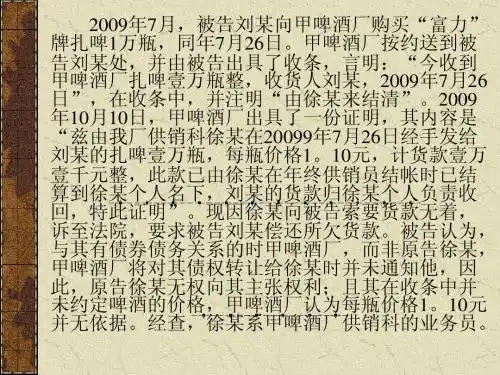 2009年7月，被告刘某向甲啤酒厂购买“富力”
牌扎啤1万瓶，同年7月26日。甲啤酒厂按约送到被
告刘某处，并由被告出具了收条，言明：“今收到
甲啤酒厂扎啤壹万瓶整，收货人刘某，2009年7月26
日”，在收条中，并注明“由徐某来结清”。2009
年10月10日，甲啤酒厂出具了一份证明，其内容是
“兹由我厂供销科徐某在20099年7月26日经手发给
刘某的扎啤壹万瓶，每瓶价格1。10元，计货款壹万
壹千元整，此款已由徐某在年终供销员结帐时已结
算到徐某个人名下，刘某的货款归徐某个人负责收
回，特此证明”。现因徐某向被告索要货款无着，
诉至法院，要求被告刘某偿还所欠货款。被告认为，
与其有债券债务关系的时甲啤酒厂，而非原告徐某，
甲啤酒厂将对其债权转让给徐某时并未通知他，因
此，原告徐某无权向其主张权利；且其在收条中并
未约定啤酒的价格，甲啤酒厂认为每瓶价格1。10元
并无依据。经查，徐某系甲啤酒厂供销科的业务员。